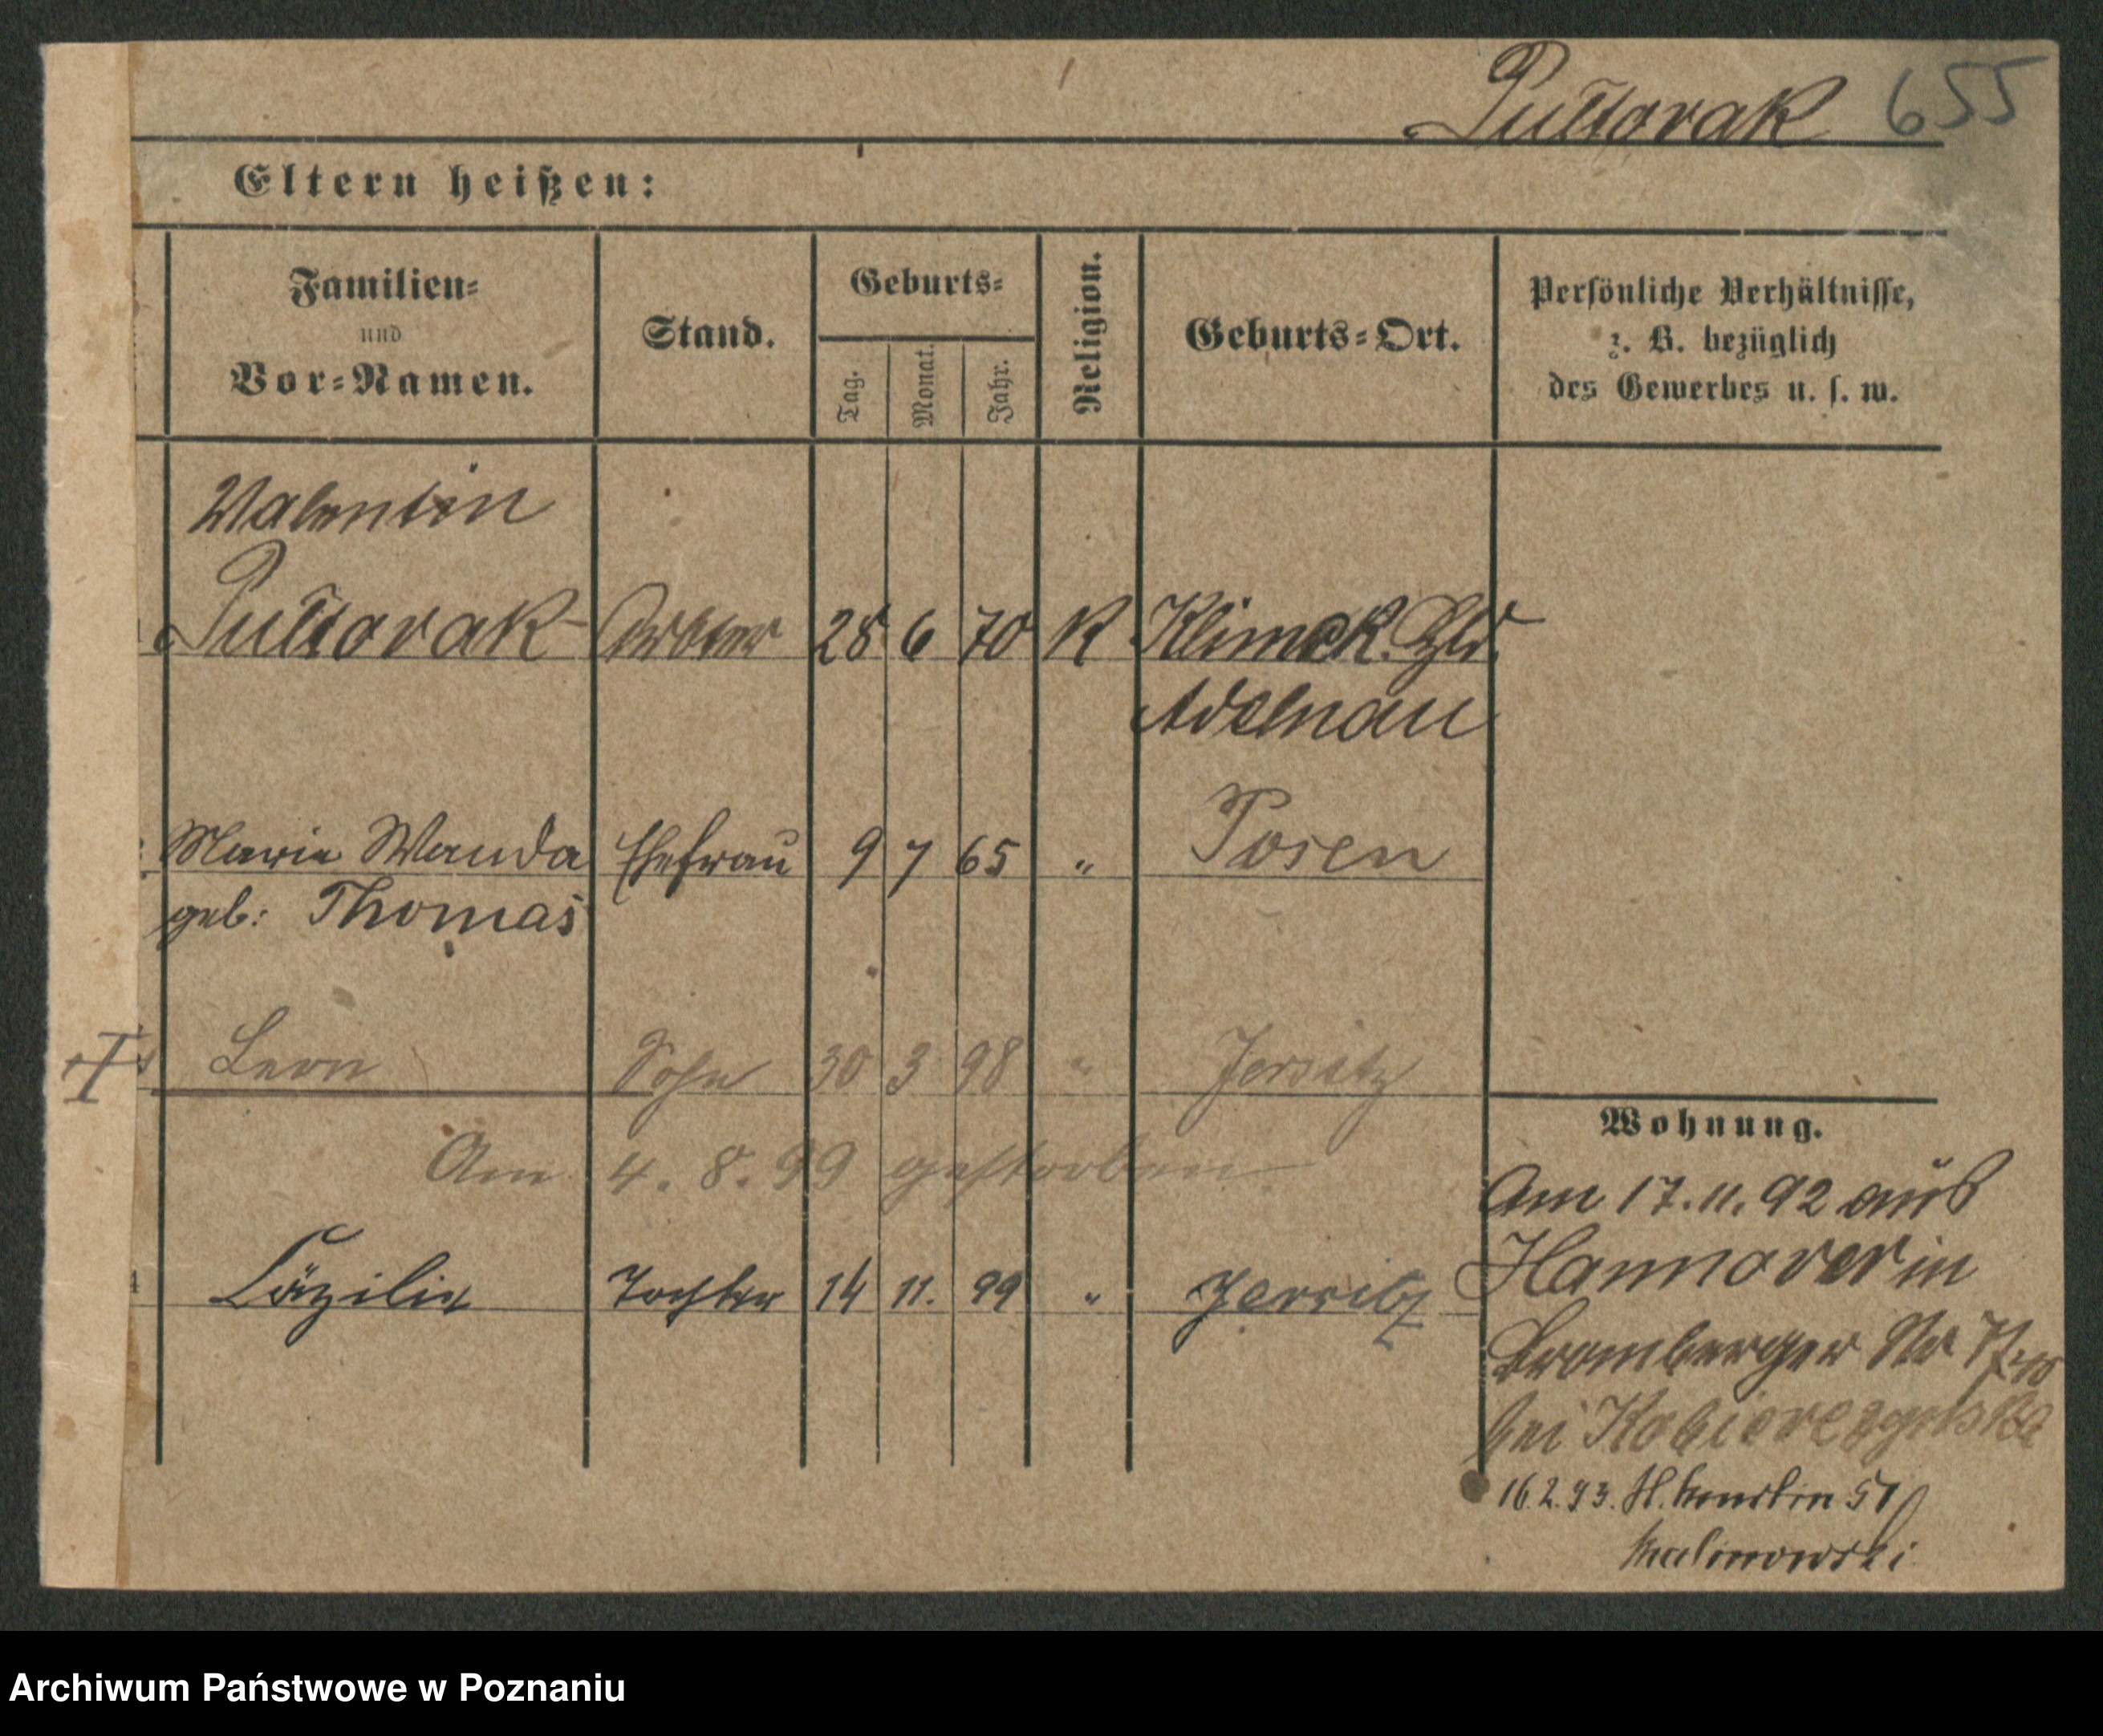 Pułtorak 655
Eltern heißen:
Familien=
und
Vor=Namen.
Stand.
Geburts=
Tag.
Monat.
Jahr.
Religion.
Geburts=Ort.
Persönliche Verhältnisse,
z. B. bezüglich
des Gewerbes u. s. w.
Valentin
Pułtorak 28 6 70 K Klimek
Adelnau
Marie Wanda Ehefrau 9 7 65 " Posen
geb: Thomas
Leon Sohn 30 3 98 " Jersitz
Am 4. 8. 99 gestorben
Cäzilie Tochter 14 11. 99 " Jersitz
Wohnung.
Am 17. 11. 92 aus
Hannover in
Bromberger
bei
16. 2. 93.
Malinowski
Archiwum Państwowe w Poznaniu